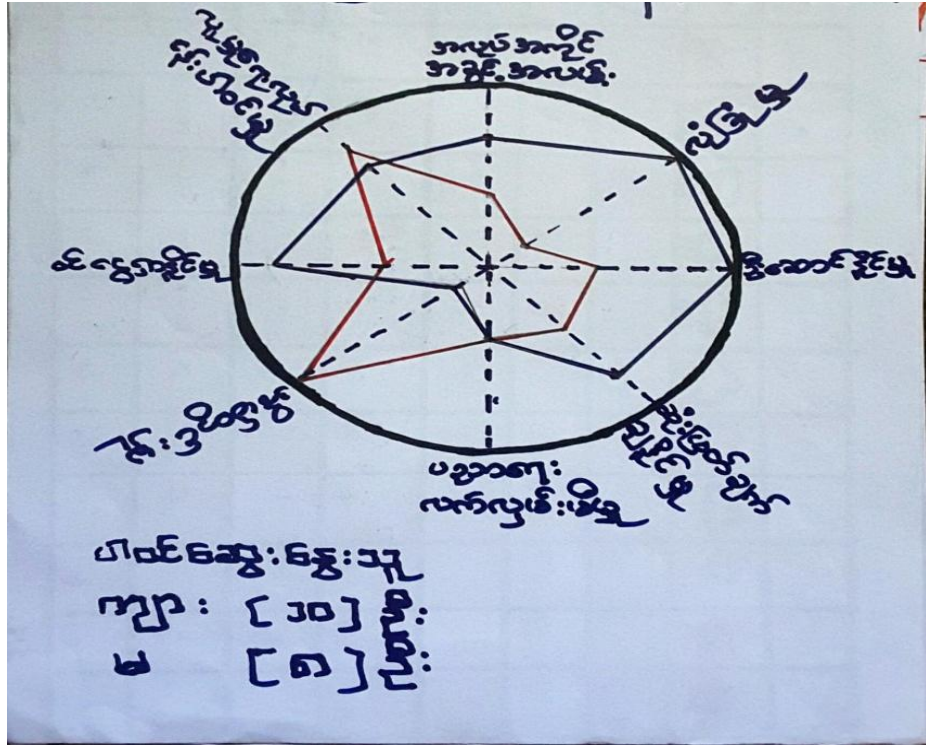 အလုပ်အကိုင်
အခွင့်အလမ်း
လုံခြုံမှု
ဦးဆောင်နိုင်မှု
ဆုံးဖြတ်ချက်
ချနိုင်မှု
ပညာရေး
လက်လှမ်းမီမှု
ဝင်ငွေရှာနိုင်မှု
လူမှုရေးလုပ်ငန်း
ပါဝင်မှု
ပါဝင်ဆွေးနွေးသူ
ကျား [ ၁၀ ] ဦး
မ [ ၈ ] ဦး